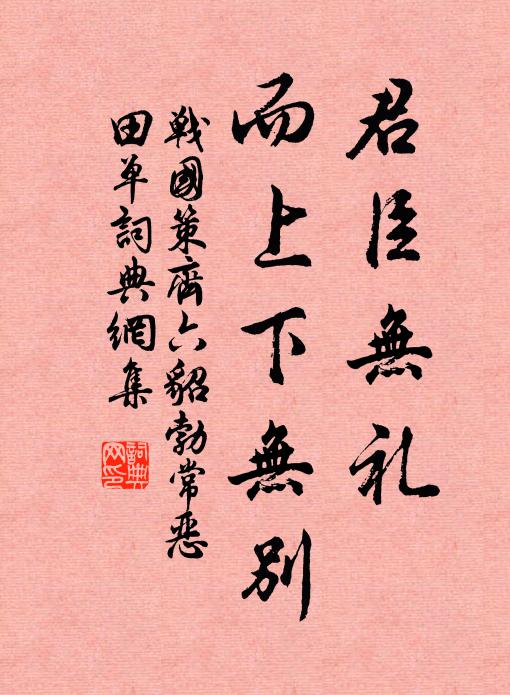 君臣無礼
而上下無別
戰國策齊六貂勃常恶
田单詞典網集
詞典网印